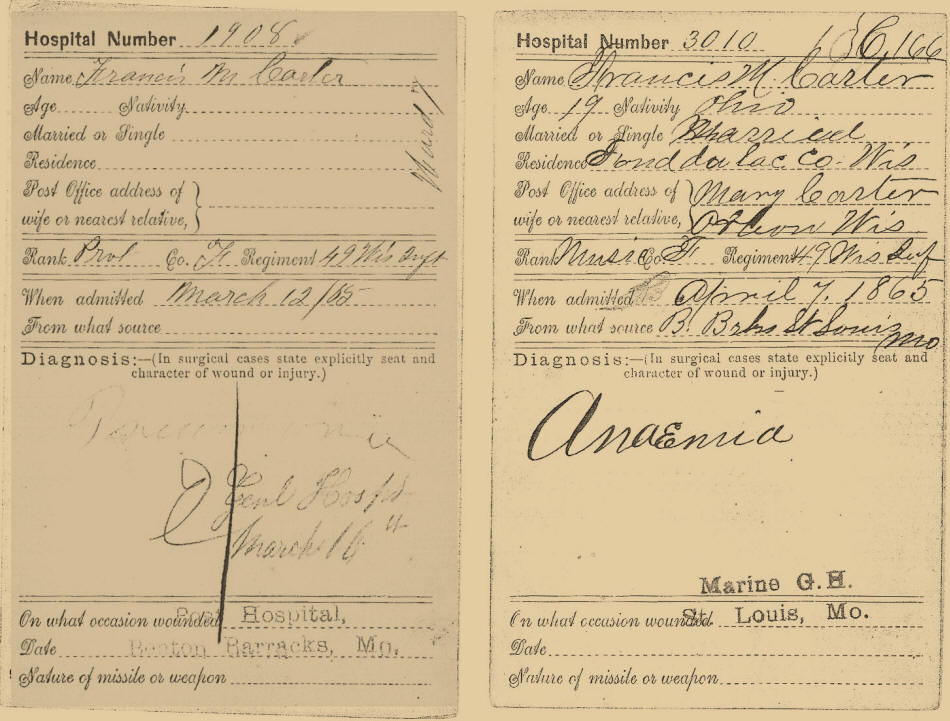 Hospital Number 1908
Name Francis M Carter
Age Nativity
Married or Single
Residence
Post Office address of
wife or nearest relative,
Ward
Rank Prvt Co. F Regiment 49 Wis Inft
When admitted March 12/65
From what source
Diagnosis:—(In surgical cases state explicitly seat and
character of wound or injury.)
Genl Hospt
March 16"
On what occasion wounded Post Hospital,
Date Benton Barracks, Mo.
Nature of missile or weapon
Hospital Number 3010 C. 166
Name Francis M. Carter
Age 19 Nativity Ohio
Married or Single Married
Residence Fond du lac Co. Wis
Post Office address of Mary Carter
wife or nearest relative, Wis
Rank Music Co F Regiment 49 Wis Inf
When admitted April 7. 1865
From what source B. Brks St Louis
Mo
Diagnosis:—(In surgical cases state explicitly seat and
character of wound or injury.)
Anaemia
Marine G. H.
On what occasion wounded St. Louis, Mo.
Date
Nature of missile or weapon